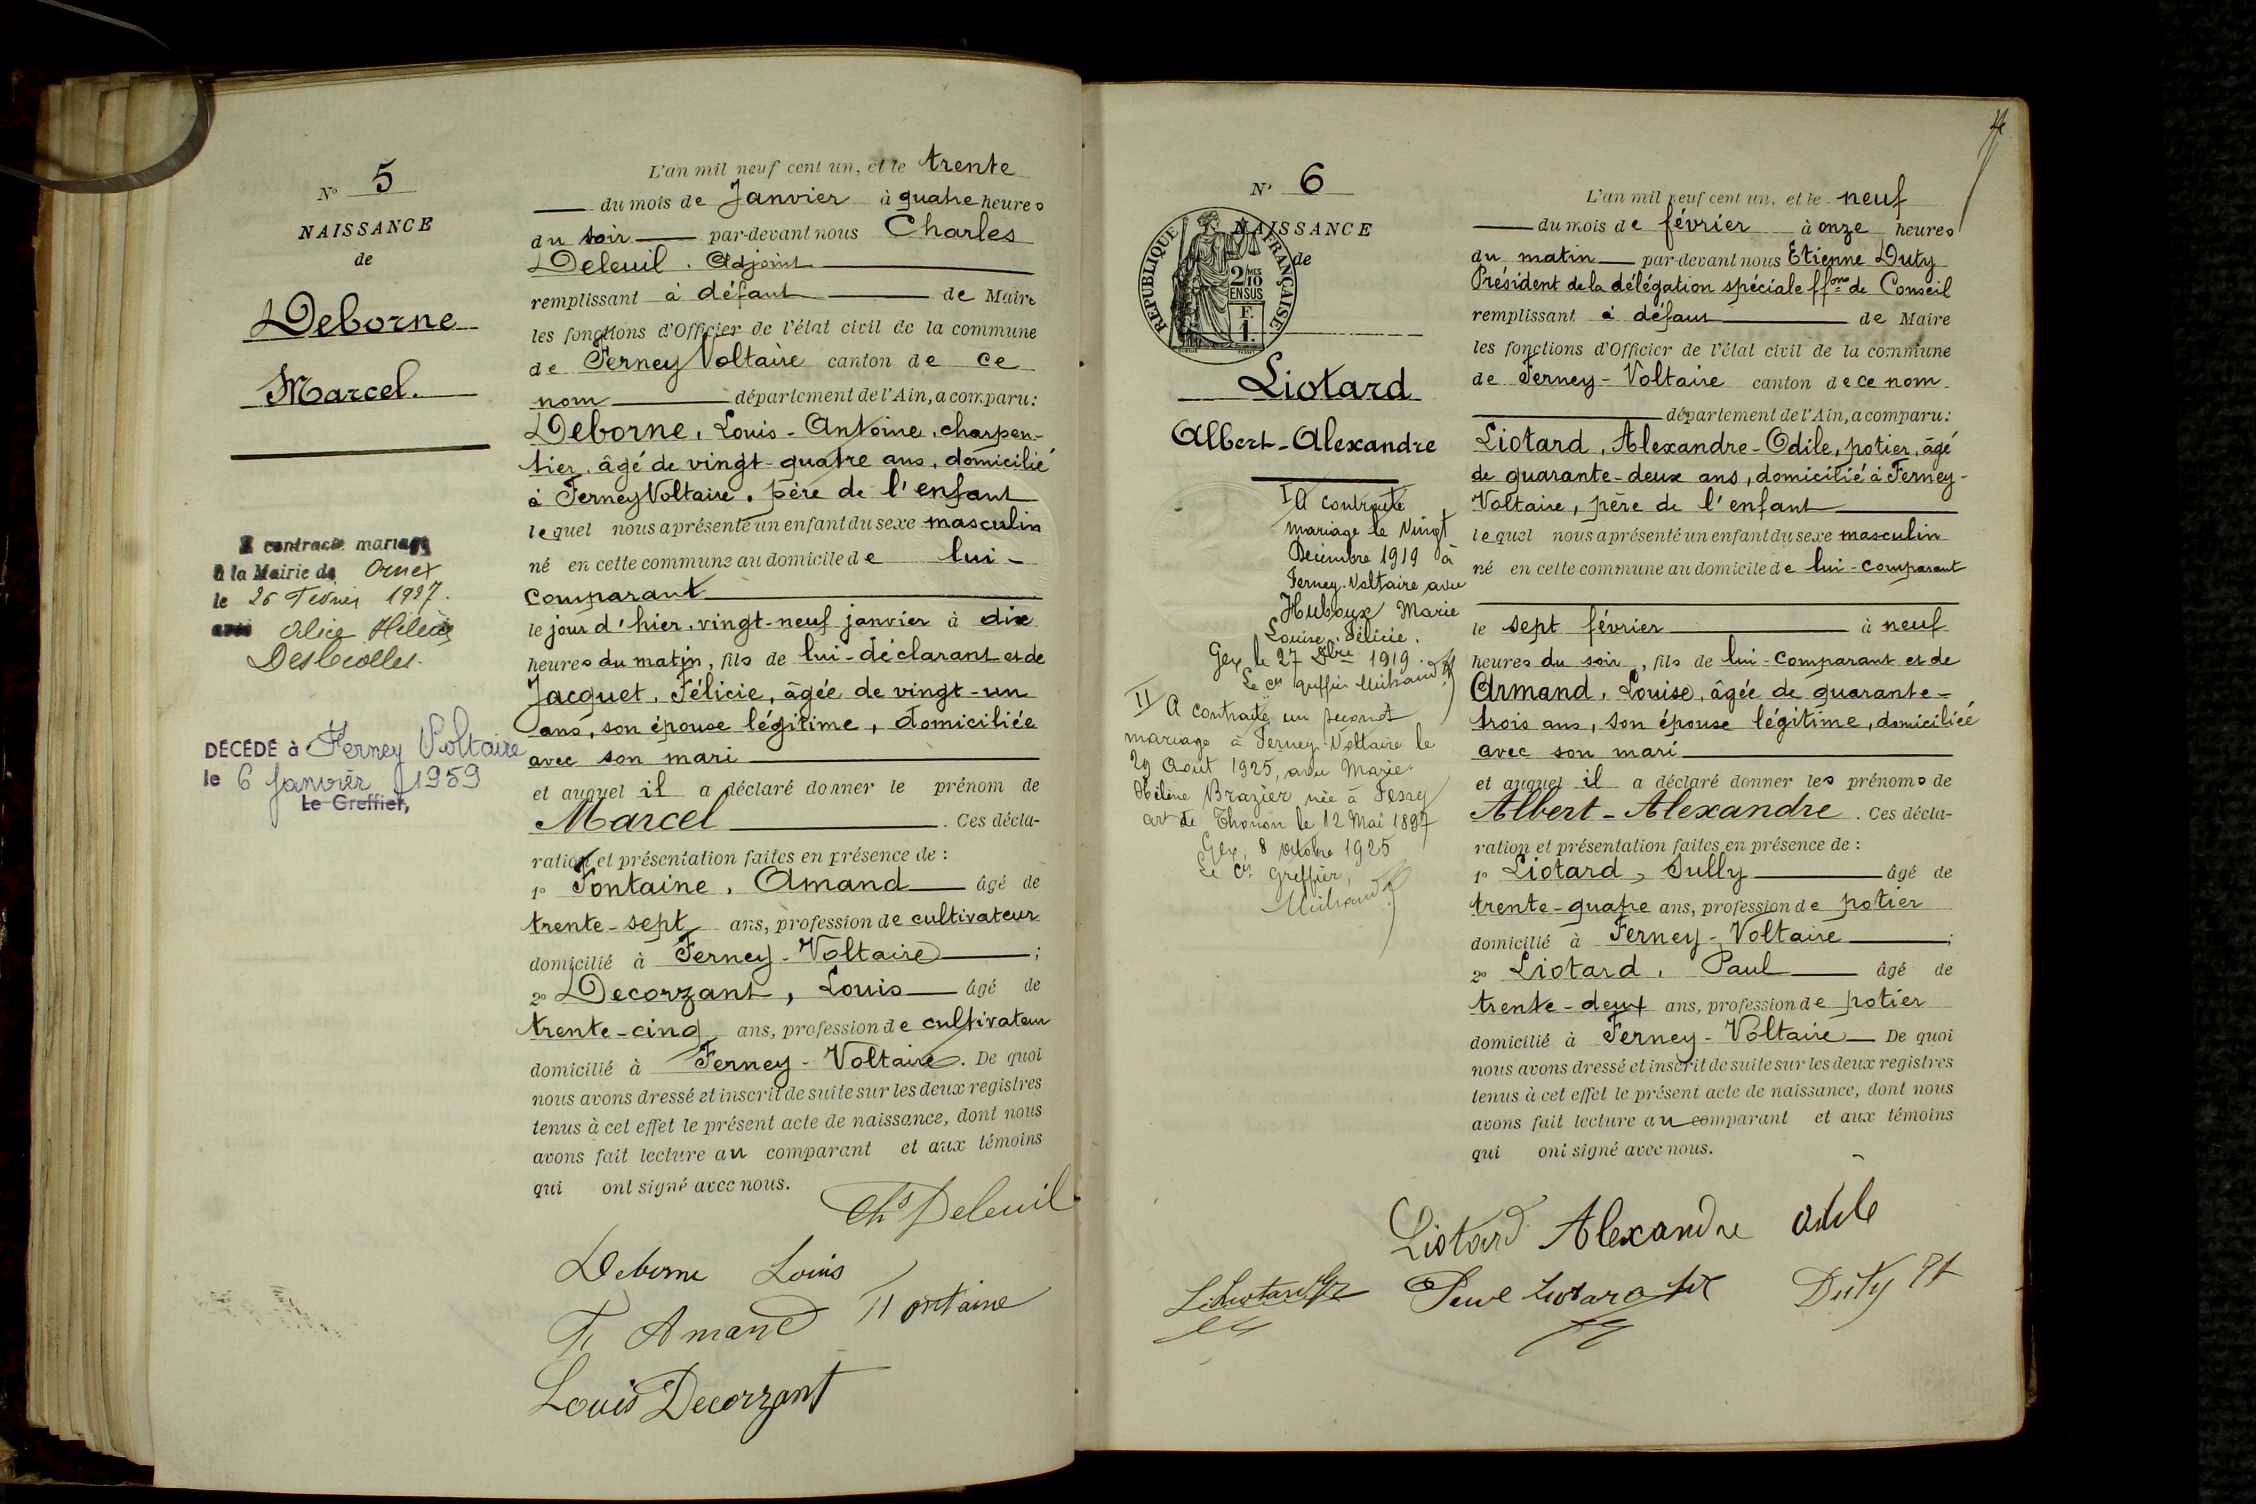 N° 5
NAISSANCE
de
Deborne
Marcel.
A contracté mariage
à la Mairie de Ornex
le 26 Février 1927.
avec Alice Hélène
Desbiolles.
DÉCÉDÉ à Ferney Voltaire
le 6 Janvier 1959
Le Greffier,
L'an mil neuf cent un, et le trente
du mois de Janvier à quatre heures
du soir par-devant nous Charles
Deleuil. Adjoint
remplissant à défaut de Maire
les fonctions d'Officier de l'état civil de la commune
de Ferney Voltaire canton de ce
nom département de l'Ain, a comparu:
Deborne, Louis-Antoine, charpen-
tier, âgé de vingt-quatre ans, domicilié
à Ferney Voltaire, père de l'enfant
lequel nous a présenté un enfant du sexe masculin
né en cette commune au domicile de lui-
comparant
le jour d'hier, vingt-neuf janvier à dix
heures du matin, fils de lui-déclarant et de
Jacquet, Félicie, âgée de vingt-un
ans, son épouse légitime, domiciliée
avec son mari
et auquel il a déclaré donner le prénom de
Marcel. Ces décla-
ration et présentation faites en présence de :
1° Fontaine, Amand âgé de
trente-sept ans, profession de cultivateur
domicilié à Ferney-Voltaire ;
2° Decorzant, Louis âgé de
trente-cinq ans, profession de cultivateur
domicilié à Ferney-Voltaire. De quoi
nous avons dressé et inscrit de suite sur les deux registres
tenus à cet effet le présent acte de naissance, dont nous
avons fait lecture au comparant et aux témoins
qui ont signé avec nous.
Chs Deleuil
Deborne Louis
Amand Fontaine
Louis Decorzant
N° 6
NAISSANCE
de
REPUBLIQUE FRANÇAISE
2/10 MES
EN SUS
F.
1.
Liotard
Albert-Alexandre
I A contracté
mariage le Vingt
Décembre 1919 à
Ferney-Voltaire avec
Huboux Marie
Louise Félicie.
Gex, le 27 Xbre 1919.
Le cis greffier
II A contracté un second
mariage à Ferney-Voltaire le
29 Août 1925, avec Marie-
Hélène Brazier née à Fessy
art de Thonon le 12 Mai 1897
Gex, 8 octobre 1925
Le Cis Greffier,
L'an mil neuf cent un, et le neuf
du mois de février à onze heures
du matin par-devant nous Etienne Duty
Président de la délégation spéciale ffons de Conseil
remplissant à défaut de Maire
les fonctions d'Officier de l'état civil de la commune
de Ferney-Voltaire canton de ce nom
département de l'Ain, a comparu:
Liotard, Alexandre-Odile, potier, âgé
de quarante-deux ans, domicilié à Ferney-
Voltaire, père de l'enfant
lequel nous a présenté un enfant du sexe masculin
né en cette commune au domicile de lui-comparant
le sept février à neuf
heures du soir, fils de lui-comparant et de
Armand, Louise, âgée de quarante-
trois ans, son épouse légitime, domiciliée
avec son mari
et auquel il a déclaré donner les prénoms de
Albert-Alexandre. Ces décla-
ration et présentation faites en présence de :
1° Liotard, Sully âgé de
trente-quatre ans, profession de potier
domicilié à Ferney-Voltaire ;
2° Liotard, Paul âgé de
trente-deux ans, profession de potier
domicilié à Ferney-Voltaire De quoi
nous avons dressé et inscrit de suite sur les deux registres
tenus à cet effet le présent acte de naissance, dont nous
avons fait lecture au comparant et aux témoins
qui ont signé avec nous.
Liotard Alexandre Odile
Duty